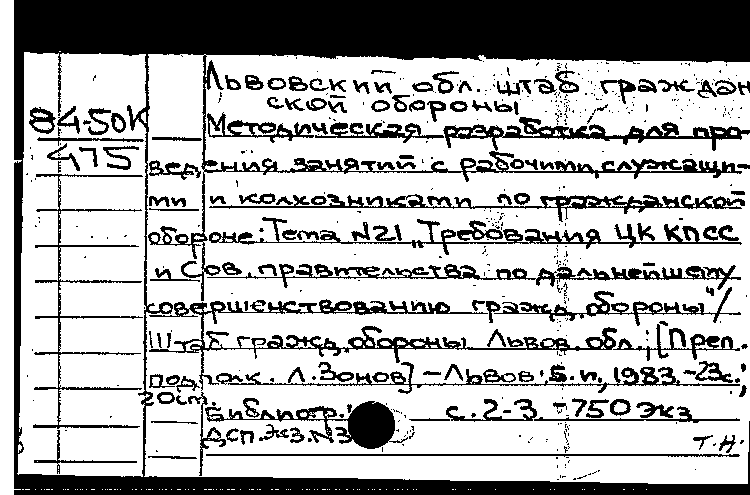 Львовский обл. штаб граждан
ской обороны
84-50К
475
Методическая разработка для про-
ведения занятий с рабочими, служащи-
ми и колхозниками по гражданской
обороне: Тема N21 „Требования ЦК КПСС
и Сов. правительства по дальнейшему
совершенствованию гражд. обороны"/
Штаб гражд. обороны Львов. обл.; [Преп.
подполк. Л. Зонов] - Львов: Б.и., 1983. -23с.;
20см.
Библиогр.: с. 2-3. - 750 экз.
ДСП. Экз. N3
Т.Н.